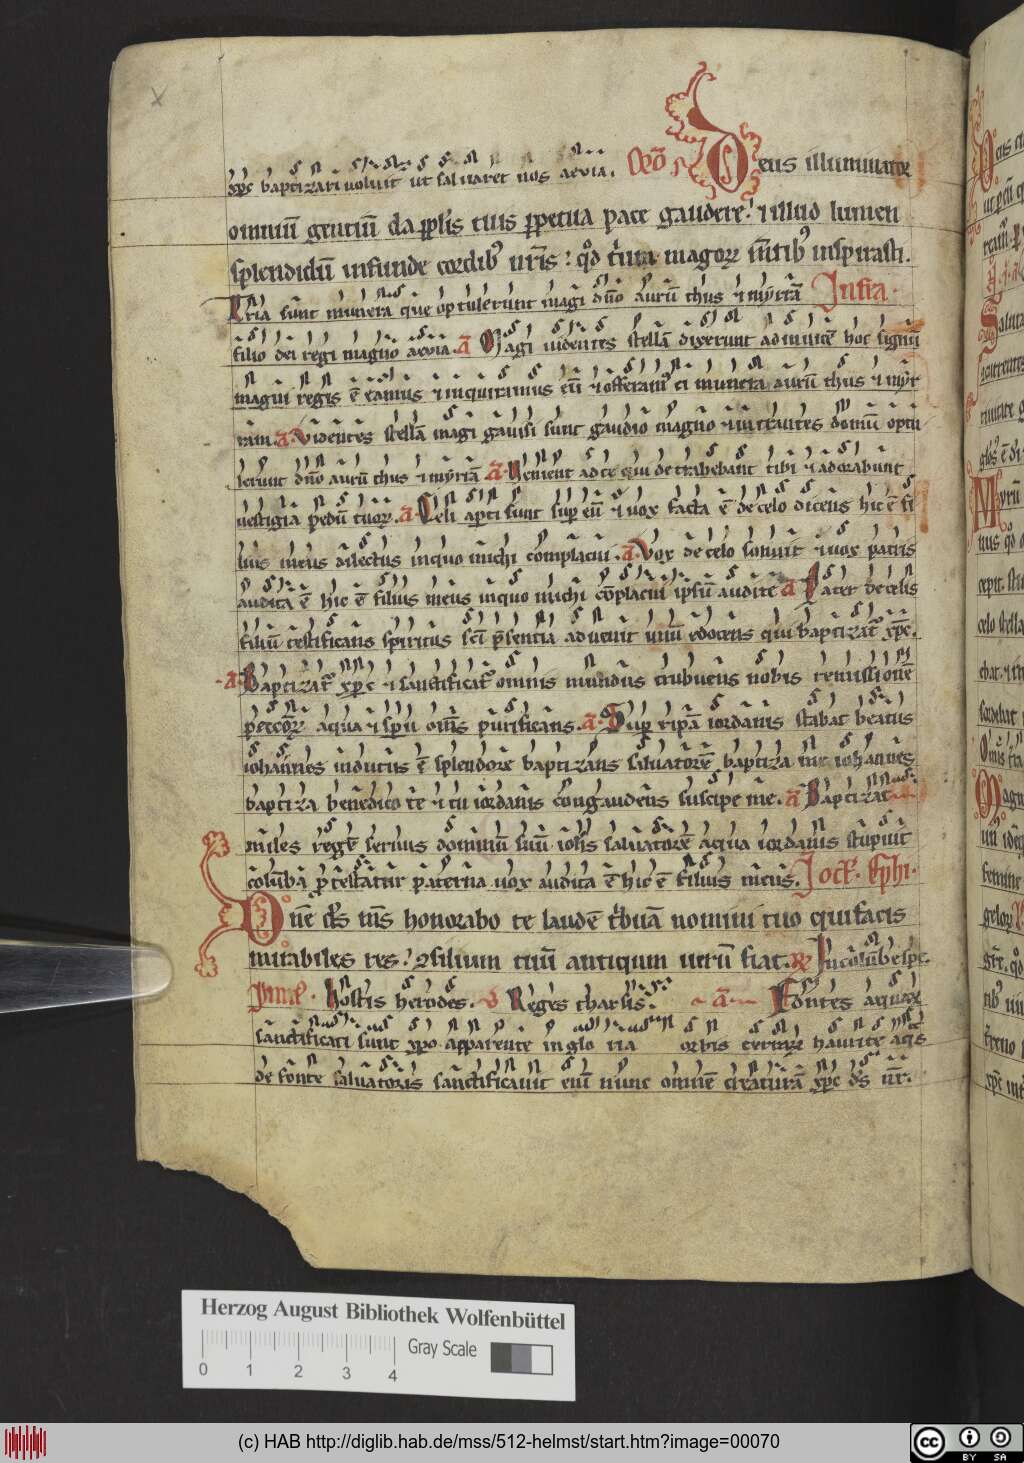 xp̄c baptizari uoluit ut saluaret nos aeuia. Deus illuminator
omniū gentiū da ppl̄is tuis ppetua pace gaudere. ⁊ illud lumen
splendidū infunde cordib; nr̄is: qd̄ trium magorꝝ m̄tib; inspirasti.
Tria sunt munera que optulerunt magi dn̄o aurū thus ⁊ myrrā Infra.
filio dei regi magno aeuia. ā Magi uidentes stellā dixerunt adinuicē hoc signū
magni regis ē eamus ⁊ inquiramus eū ⁊ offeram' ei munera aurū thus ⁊ myr
ram. ā Videntes stellā magi gauisi sunt gaudio magno ⁊ intrantes domū optu
lerunt dn̄o aurū thus ⁊ myrrā ā Uenient ad te qui detrahebant tibi ⁊ adorabunt
uestigia pedū tuorꝝ. ā Celi apti sunt sup eū ⁊ uox facta ē de celo dicens hic ē fi
lius meus dilectus inquo michi complacui. ā Vox de celo sonuit ⁊ uox patris
audita ē hic ē filius meus inquo michi cōplacui ipsū audite ā Pater de celis
filiū testificans spiritus sc̄i p̄sentia aduenit unū edocens qui baptizat' xp̄c.
ā Baptizat' xp̄c ⁊ sanctificat' omnis mundus tribuens nobis remissionē
peccōrꝝ aqua ⁊ sp̄u om̄s purificans. ā Sup ripā iordanis stabat beatus
iohannes indutus ē splendore baptizans saluatorē baptiza me iohannes
baptiza benedico te ⁊ tu iordanis congaudens suscipe me. ā Baptizat
miles regē seruus dominū suū ioh̄s saluatorē aqua iordanis stupuit
columba p̄testatur paterna uox audita ē hic ē filius meus. In oct'. Epħi.
Dn̄e ds̄ m̄s honorabo te laudē t'buā nomini tuo qui facis
mirabiles res. ꝯsilium tuū antiqum uerū fiat. ℟ In columbe spe.
ymn'. hostis herodes. v Reges tharsis. ā. Fontes aquarꝝ
sanctificati sunt xp̄o apparente in glo ria orbis terrarꝝ haurite aq̄s
de fonte saluatoris sanctificauit enī nunc omnē creaturā xp̄c ds̄ nr̄.
Herzog August Bibliothek Wolfenbüttel
Gray Scale
0 1 2 3 4
(c) HAB http://diglib.hab.de/mss/512-helmst/start.htm?image=00070
cc BY SA